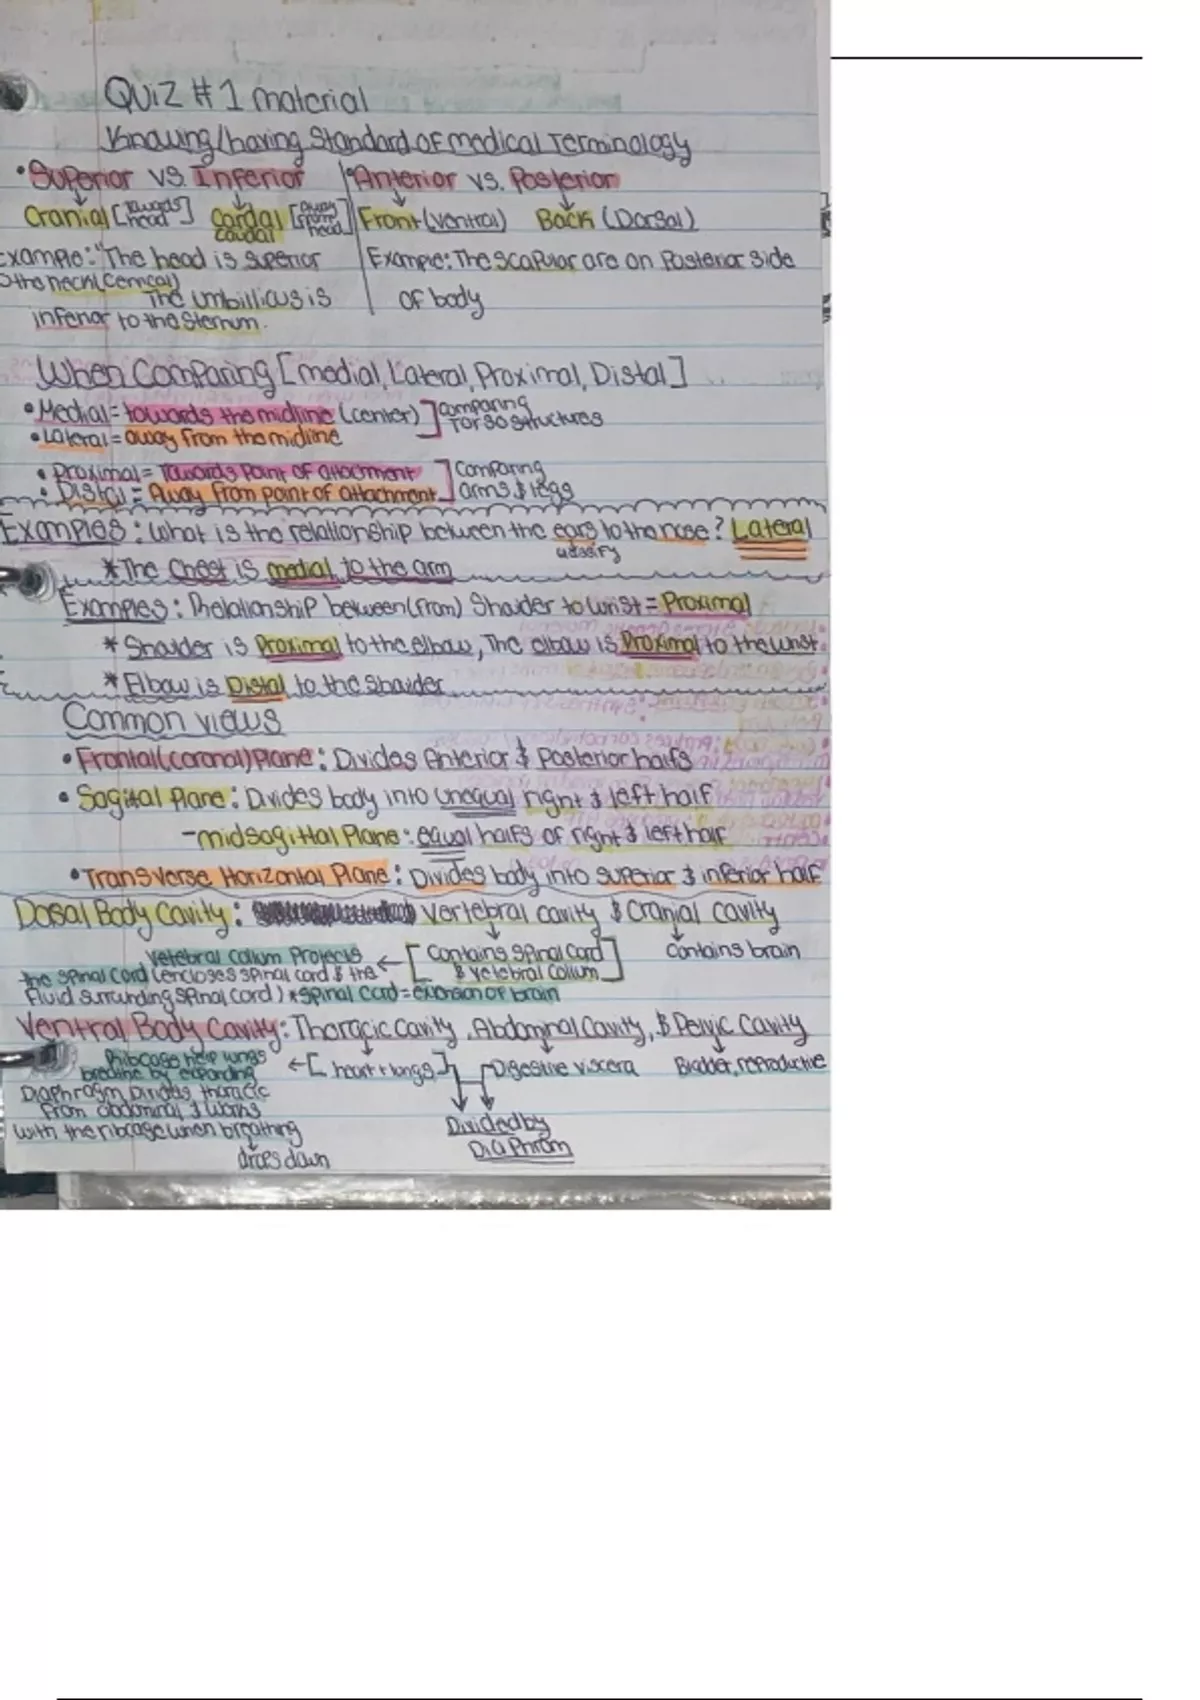 Quiz #1 material
Knowing/having Standard of medical Terminology
• Superior vs. Inferior
Cranial [towards head] Cardal [away from head]
caudal
Example: "The head is superior
to the neck (Cervical)
The umbillicus is
inferior to the sternum.
• Anterior vs. Posterior
Front (ventral) Back (Dorsal)
Example: The scapular are on Posterior side
of body
When Comparing [medial, Lateral, Proximal, Distal]
• Medial = towards the midline (center) ] comparing
• Lateral = away from the midline torso structures
• Proximal = Towards Point of attachment ] Comparing
• Distal = Away from point of attachment arms & legs
Examples: What is the relationship between the ears to the nose? Lateral
* The Chest is medial to the arm
Examples: Relationship between (from) Shoulder to wrist = Proximal
* Shoulder is Proximal to the elbow, The elbow is Proximal to the wrist.
* Elbow is Distal to the shoulder
Common views
• Frontal (coronal) Plane: Divides Anterior & Posterior halfs
• Sagital Plane: Divides body into unequal right & left half
- midsagittal Plane: equal halfs of right & left half
• Transverse Horizontal Plane: Divides body into superior & inferior half
Dorsal Body Cavity: vertebral cavity & Cranial cavity
[Contains Spinal Cord
& vetebral Collum] Contains brain
Vetebral collum Projects
the spinal cord (encloses spinal cord & the
fluid surrunding spinal cord) * spinal cord = extension of brain
Ventral Body Cavity: Thoracic cavity, Abdominal Cavity, & Pelvic Cavity
[heart + lungs] Digestive viscera Bladder, reproductive
Ribcage help lungs
breathe by expanding
Diaphragm Divides thoracic
from abdominal & works
with the ribcage when breathing
drops down
Divided by
Diaphram